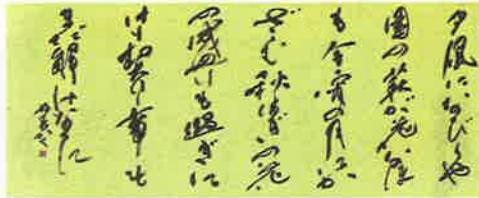 夕風になびくや
園の萩が花なほ
も今宵の月にか
ざさむ秋はぎの花
の盛りも過ぎに
けり契りし事も
まだ解けなくに